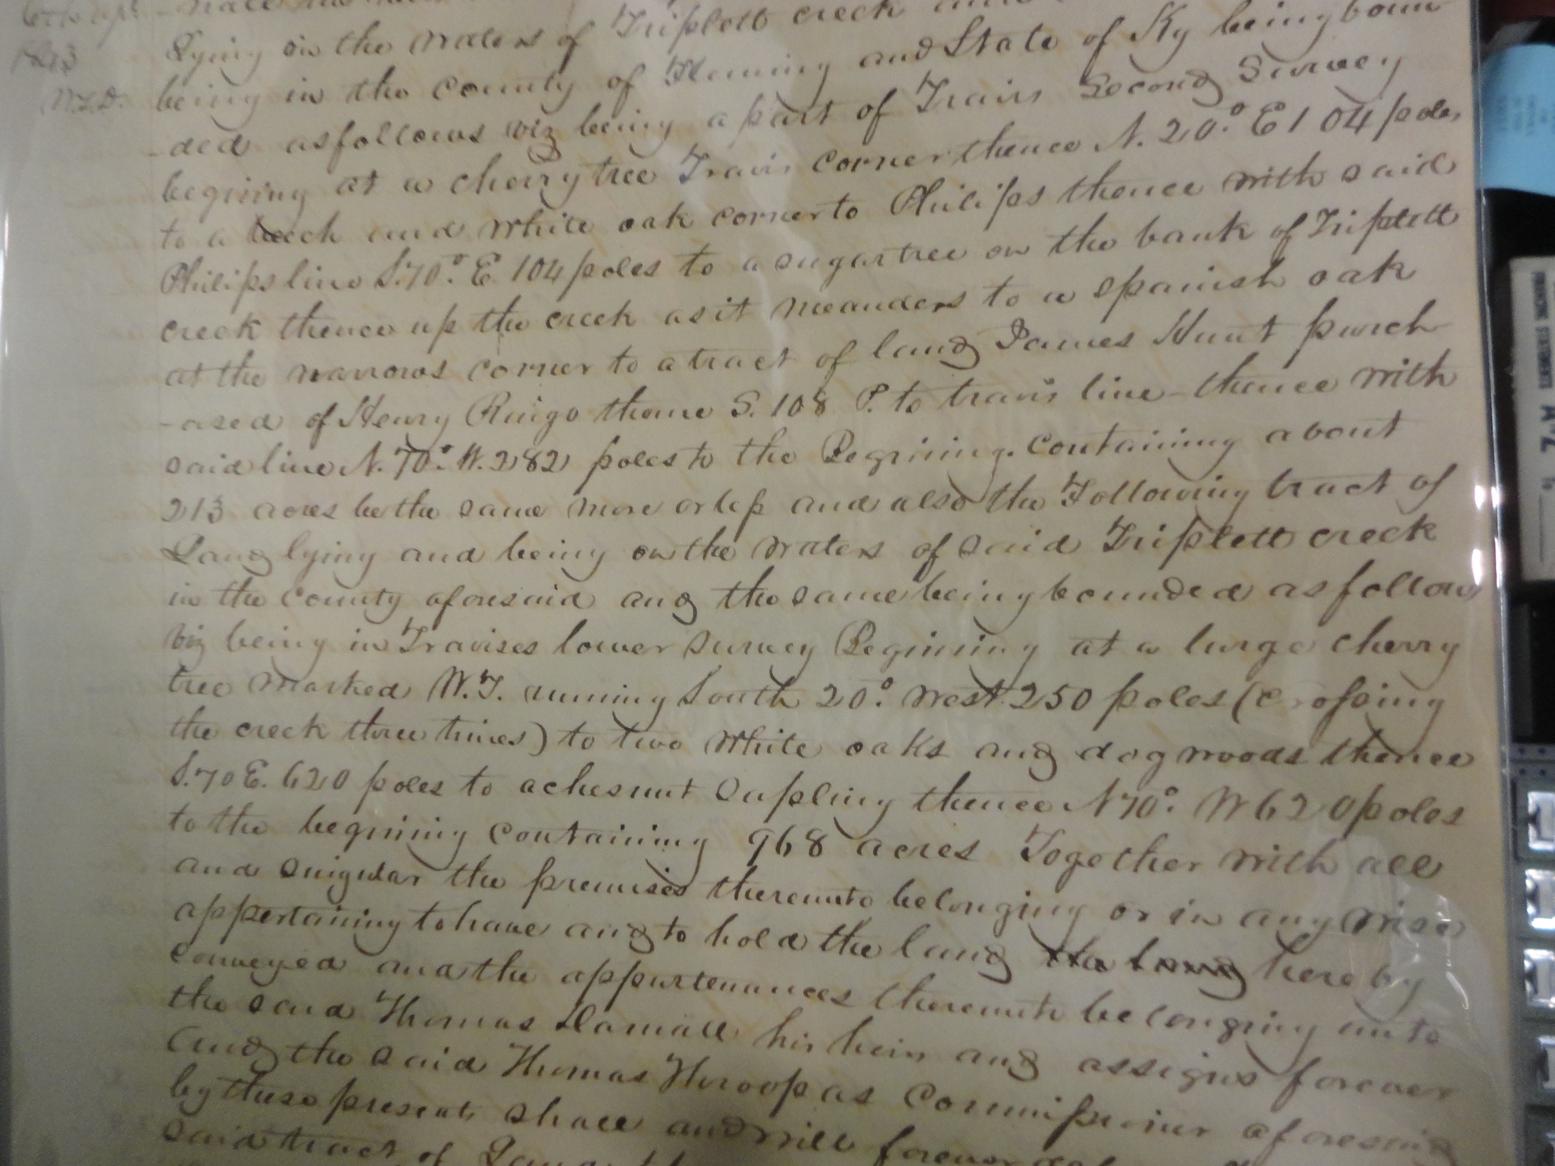 lying on the waters of Triplett creek and
being in the county of Fleming and State of Ky being boun
-ded as follows viz being a part of Travis Second Survey
begining at a cherry tree Travis corner thence N. 20° E 104 poles
to a beech and white oak corner to Philips thence with said
Philips line S. 70° E 104 poles to a sugartree on the bank of Triplett
creek thence up the creek as it meanders to a spanish oak
at the narrows corner to a tract of land James Hunt purch
-ased of Henry Ringo thence S. 108 P. to travis line - thence with
said line N. 70° W. 282 poles to the Begining. Containing about
213 acres be the same more or less and also the Following tract of
Land lying and being on the waters of said Triplett creek
in the county aforesaid and the same being bounded as follows
viz being in Travises lower survey Begining at a large cherry
tree marked W.T. running South 20° west 250 poles (crossing
the creek three times) to two white oaks and dogwoods thence
S. 70 E. 620 poles to a chesnut sapling thence N 70° W 620 poles
to the begining containing 968 acres Together with all
and singular the premises thereunto belonging or in any wise
appertaining to have and to hold the land the land hereby
conveyed and the appurtenances thereunto belonging unto
the said Thomas Darnall his heirs and assigns forever
And the said Thomas Throop as Commissioner aforesaid
by these presents shall and will forever
said tract of Land
W.T.D.